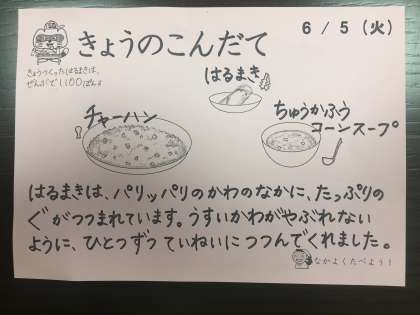 きょうのこんだて
6 / 5 (火)
きょうつくったはるまきは、
ぜんぶで1100ぽんです
はるまき
チャーハン
ちゅうかふう
コーンスープ
はるまきは、パリッパリのかわのなかに、たっぷりの
ぐがつつまれています。うすいかわがやぶれない
ように、ひとつずつていねいにつつんでくれました。
なかよくたべよう!